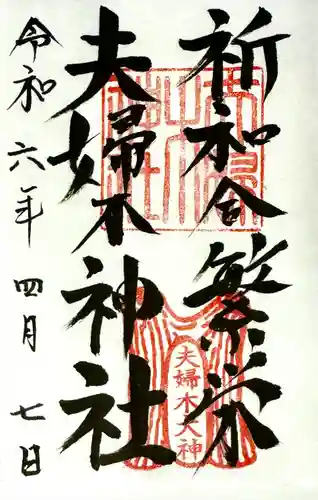 祈和合繁栄
夫婦木神社
令和六年四月七日
夫婦木大神